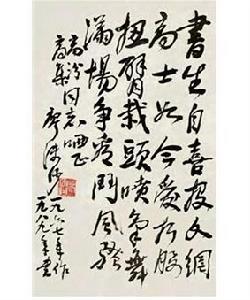 書生自喜投文網
高士如今愛折腰
扭臂栽頭噴氣舞
滿場爭看鬥風騷
高汾
高集同志哂正
廖沫沙
一九六七年作
一九八九年書